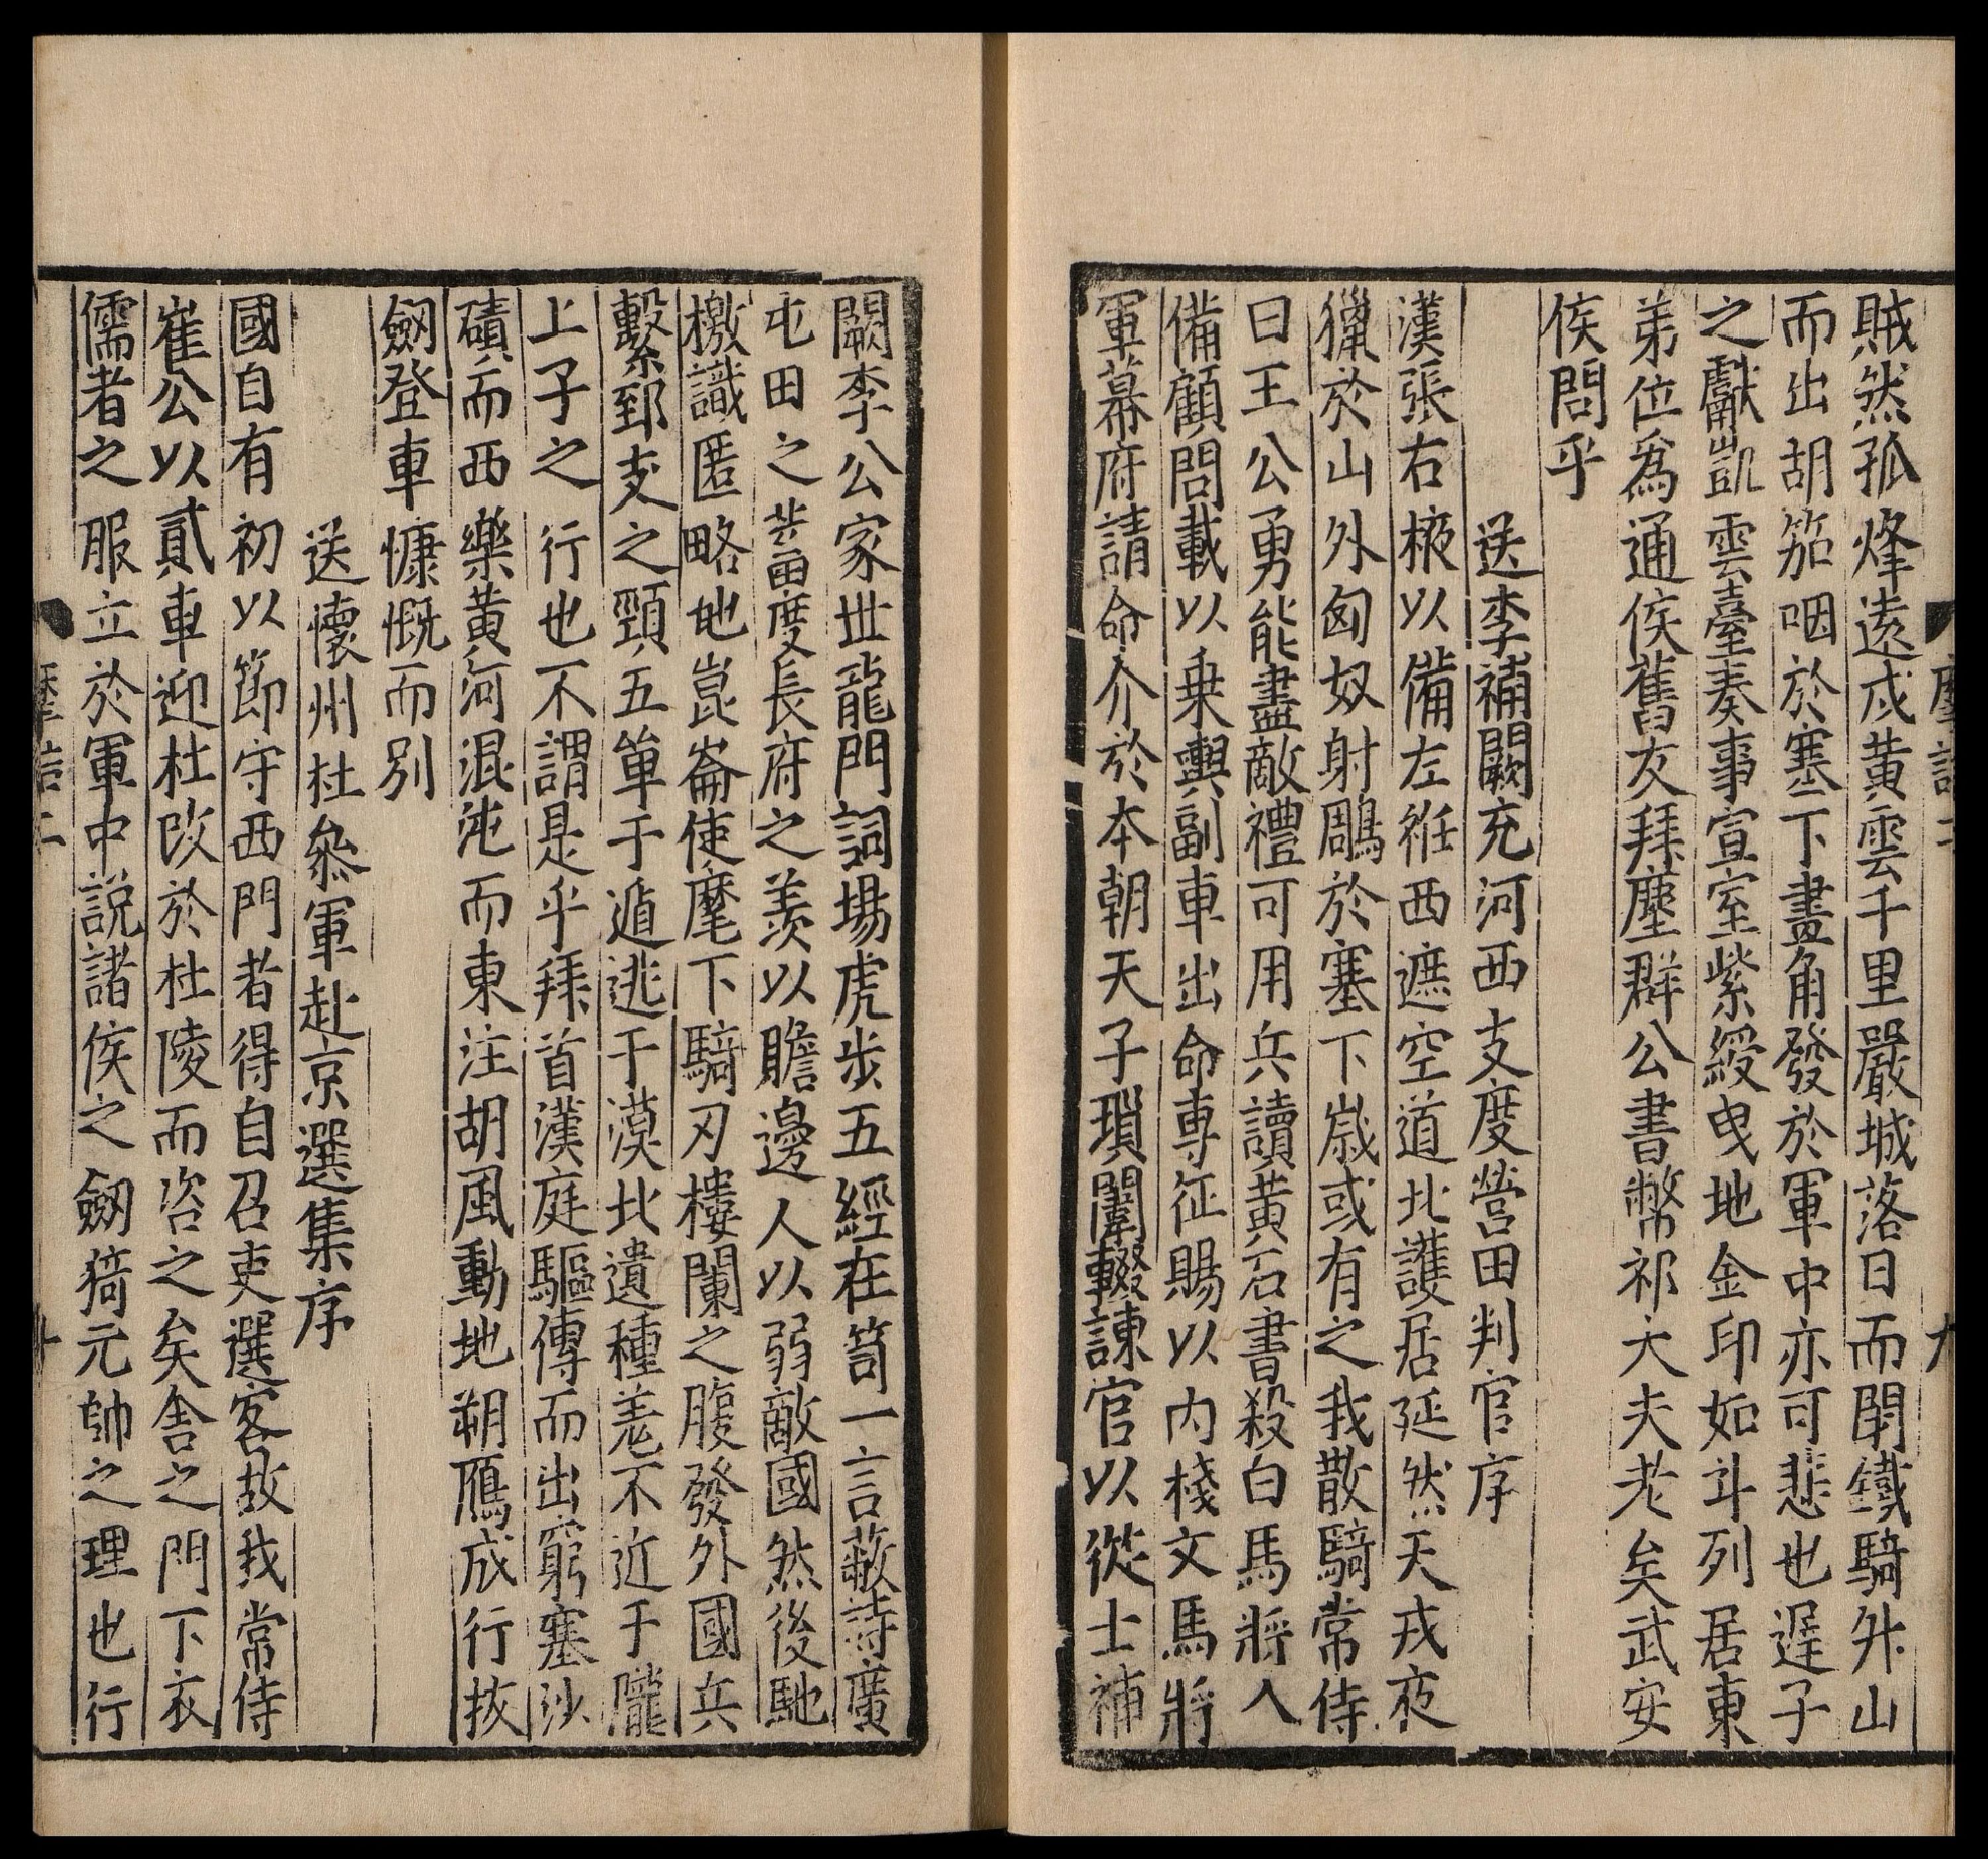 賊然孤烽遠戍黃雲千里嚴城落日而閉鐵騎升山
而出胡笳咽於塞下畫角發於軍中亦可悲也遲子
之獻凱雲臺奏事宣室紫綬曳地金印如斗列居東
弟位爲通侯舊友拜塵群公書幣祁大夫老矣武安
侯問乎
送李補闕充河西支度營田判官序
漢張右掖以備左衽西遮空道北護居延然天戎夜
獵於山外匈奴射鵰於塞下歲或有之我散騎常侍
曰王公勇能盡敵禮可用兵讀黃石書殺白馬將入
備顧問載以乗輿副車出命專征賜以内棧文馬將
軍幕府請命介於本朝天子瑣闈輟諫官以從士補
闕李公家世龍門詞場虎步五經在笥一言蔽詩廣
屯田之蓄度長府之羨以贍邊人以弱敵國然後馳
檄識匿略地崑崙使麾下騎刃樓闌之腹發外國兵
繫郅支之頸五單于遁逃于漠北遺種羌不近于隴
上子之行也不謂是乎拜首漢庭驅傳而出窮塞沙
磧而西樂黃河混沌而東注胡風動地朔鴈成行拔
劒登車慷慨而別
送懷州杜叅軍赴京選集序
國自有初以節守西門者得自召吏選客故我常侍
崔公以貳車迎杜攺於杜陵而咨之矣舎之門下衣
儒者之服立於軍中説諸侯之劒猗元帥之理也行